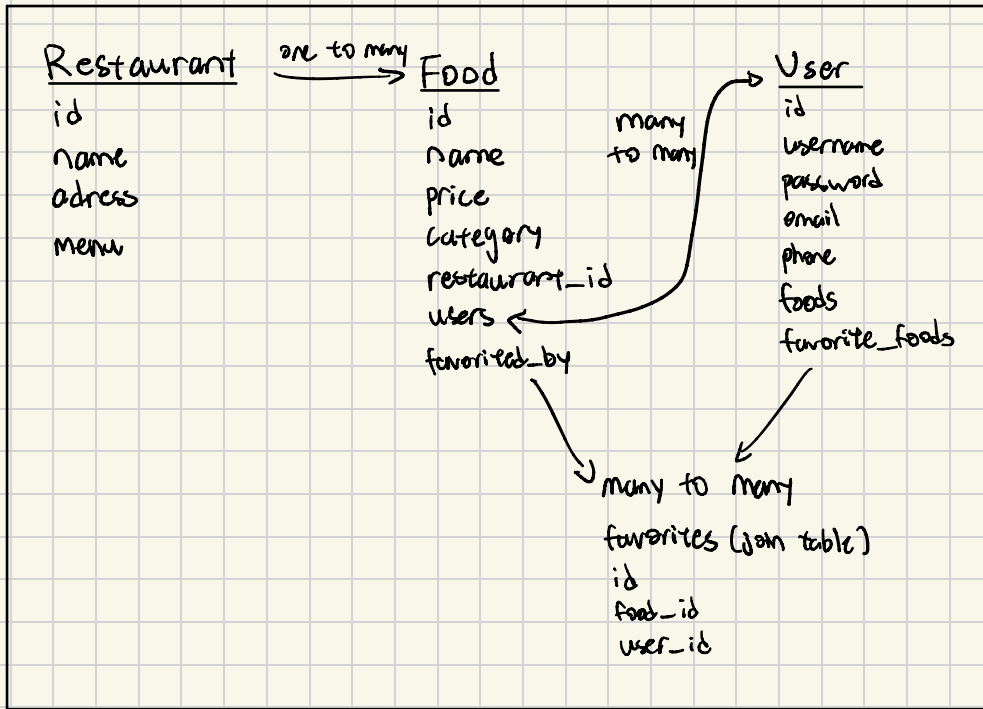 Restaurant
id
name
adress
menu
one to many
Food
id
name
price
category
restaurant_id
users
favorited_by
many
to many
User
id
username
password
email
phone
foods
favorite_foods
many to many
favorites (join table)
id
food_id
user_id